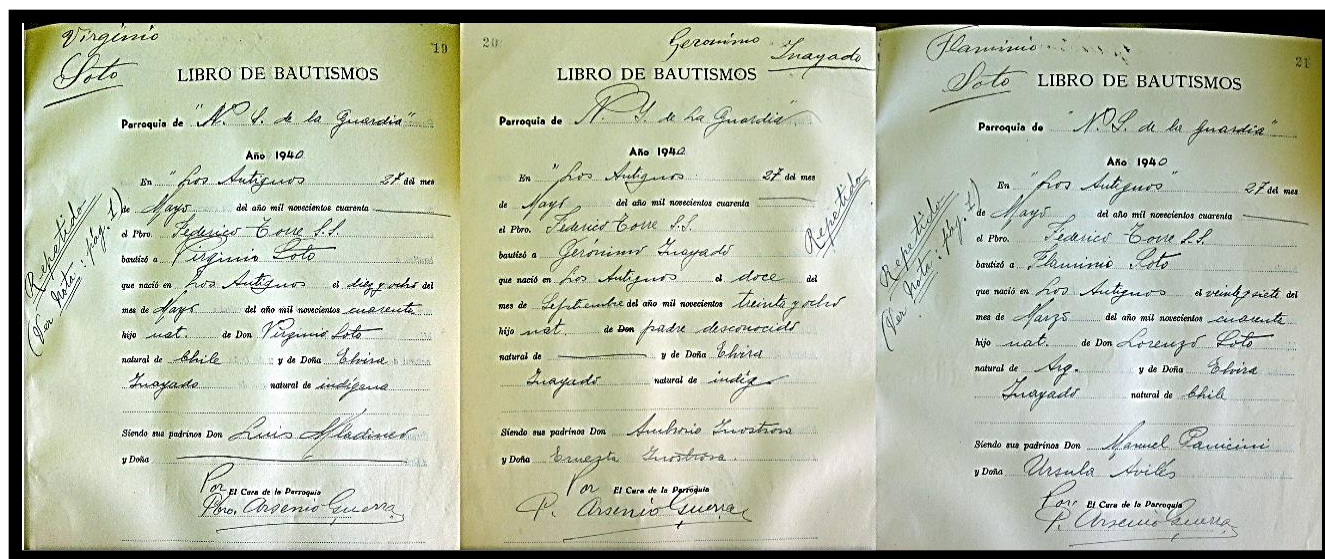 Virginio
Soto
19
LIBRO DE BAUTISMOS
Parroquia de "N. S. de la Guardia"
Año 1940
En "Los Antiguos 27 del mes
de Mayo del año mil novecientos cuarenta
el Pbro. Federico Torre S.S.
bautizó a Virginio Soto
que nació en Los Antiguos el diez y ocho del
mes de Mayo del año mil novecientos cuarenta
hijo nat. de Don Virginio Soto
natural de Chile y de Doña Elvira
Inayado natural de indígena
Siendo sus padrinos Don Luis Mladineo
y Doña
Por
El Cura de la Parroquia
Pbro. Arsenio Guerra
Repetido
(Ver nota: pág. 1)
20
Geronimo
Inayado
LIBRO DE BAUTISMOS
Parroquia de N. S. de La Guardia
Año 1940
En "Los Antiguos 27 del mes
de Mayo del año mil novecientos cuarenta
el Pbro. Federico Torre S.S.
bautizó a Gerónimo Inayado
que nació en Los Antiguos el doce del
mes de Septiembre del año mil novecientos treinta y ocho
hijo nat. de Don padre desconocido
natural de y de Doña Elvira
Inayado natural de indíg
Siendo sus padrinos Don Ambrosio Inostrosa
y Doña Ernezta Inostrosa
Por
El Cura de la Parroquia
P. Arsenio Guerra
Repetido
Flaminio
Soto
21
LIBRO DE BAUTISMOS
Parroquia de "N. S. de la Guardia"
Año 1940
En "Los Antiguos" 27 del mes
de Mayo del año mil novecientos cuarenta
el Pbro. Federico Torre S.S.
bautizó a Flaminio Soto
que nació en Los Antiguos el veintesiete del
mes de Marzo del año mil novecientos cuarenta
hijo nat. de Don Lorenzo Soto
natural de Arg. y de Doña Elvira
Inayado natural de Chile
Siendo sus padrinos Don Manuel
y Doña Ursula Avilés
Por
El Cura de la Parroquia
P. Arsenio Guerra
Repetido
(Ver nota: pág. 1)